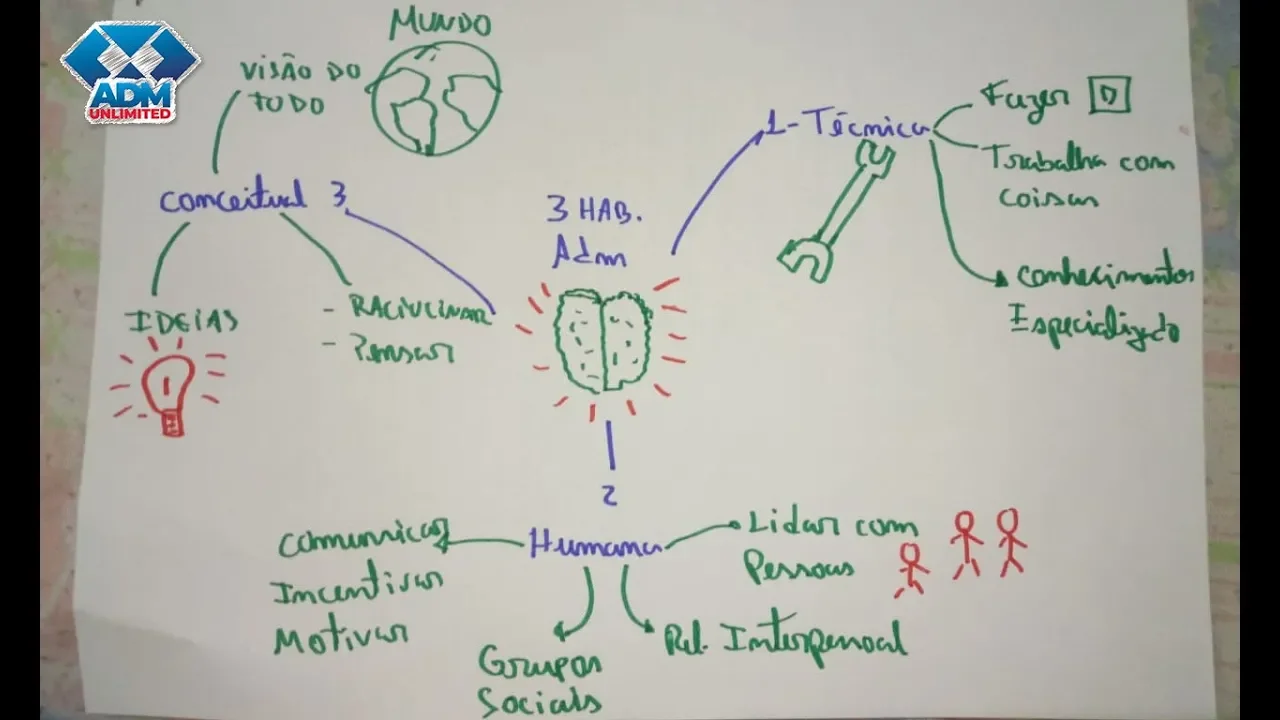 ADM
UNLIMITED
MUNDO
VISÃO DO
TUDO
conceitual 3
IDEIAS
- RACIUCINAR
- Pensar
3 HAB.
Adm
1- Técnica
Fazer D
Trabalha com
coisas
conhecimentos
Especializado
2
Humana
Comunicar
Incentivar
Motivar
Grupos
Sociais
Rel. Interpessoal
Lidar com
Pessoas